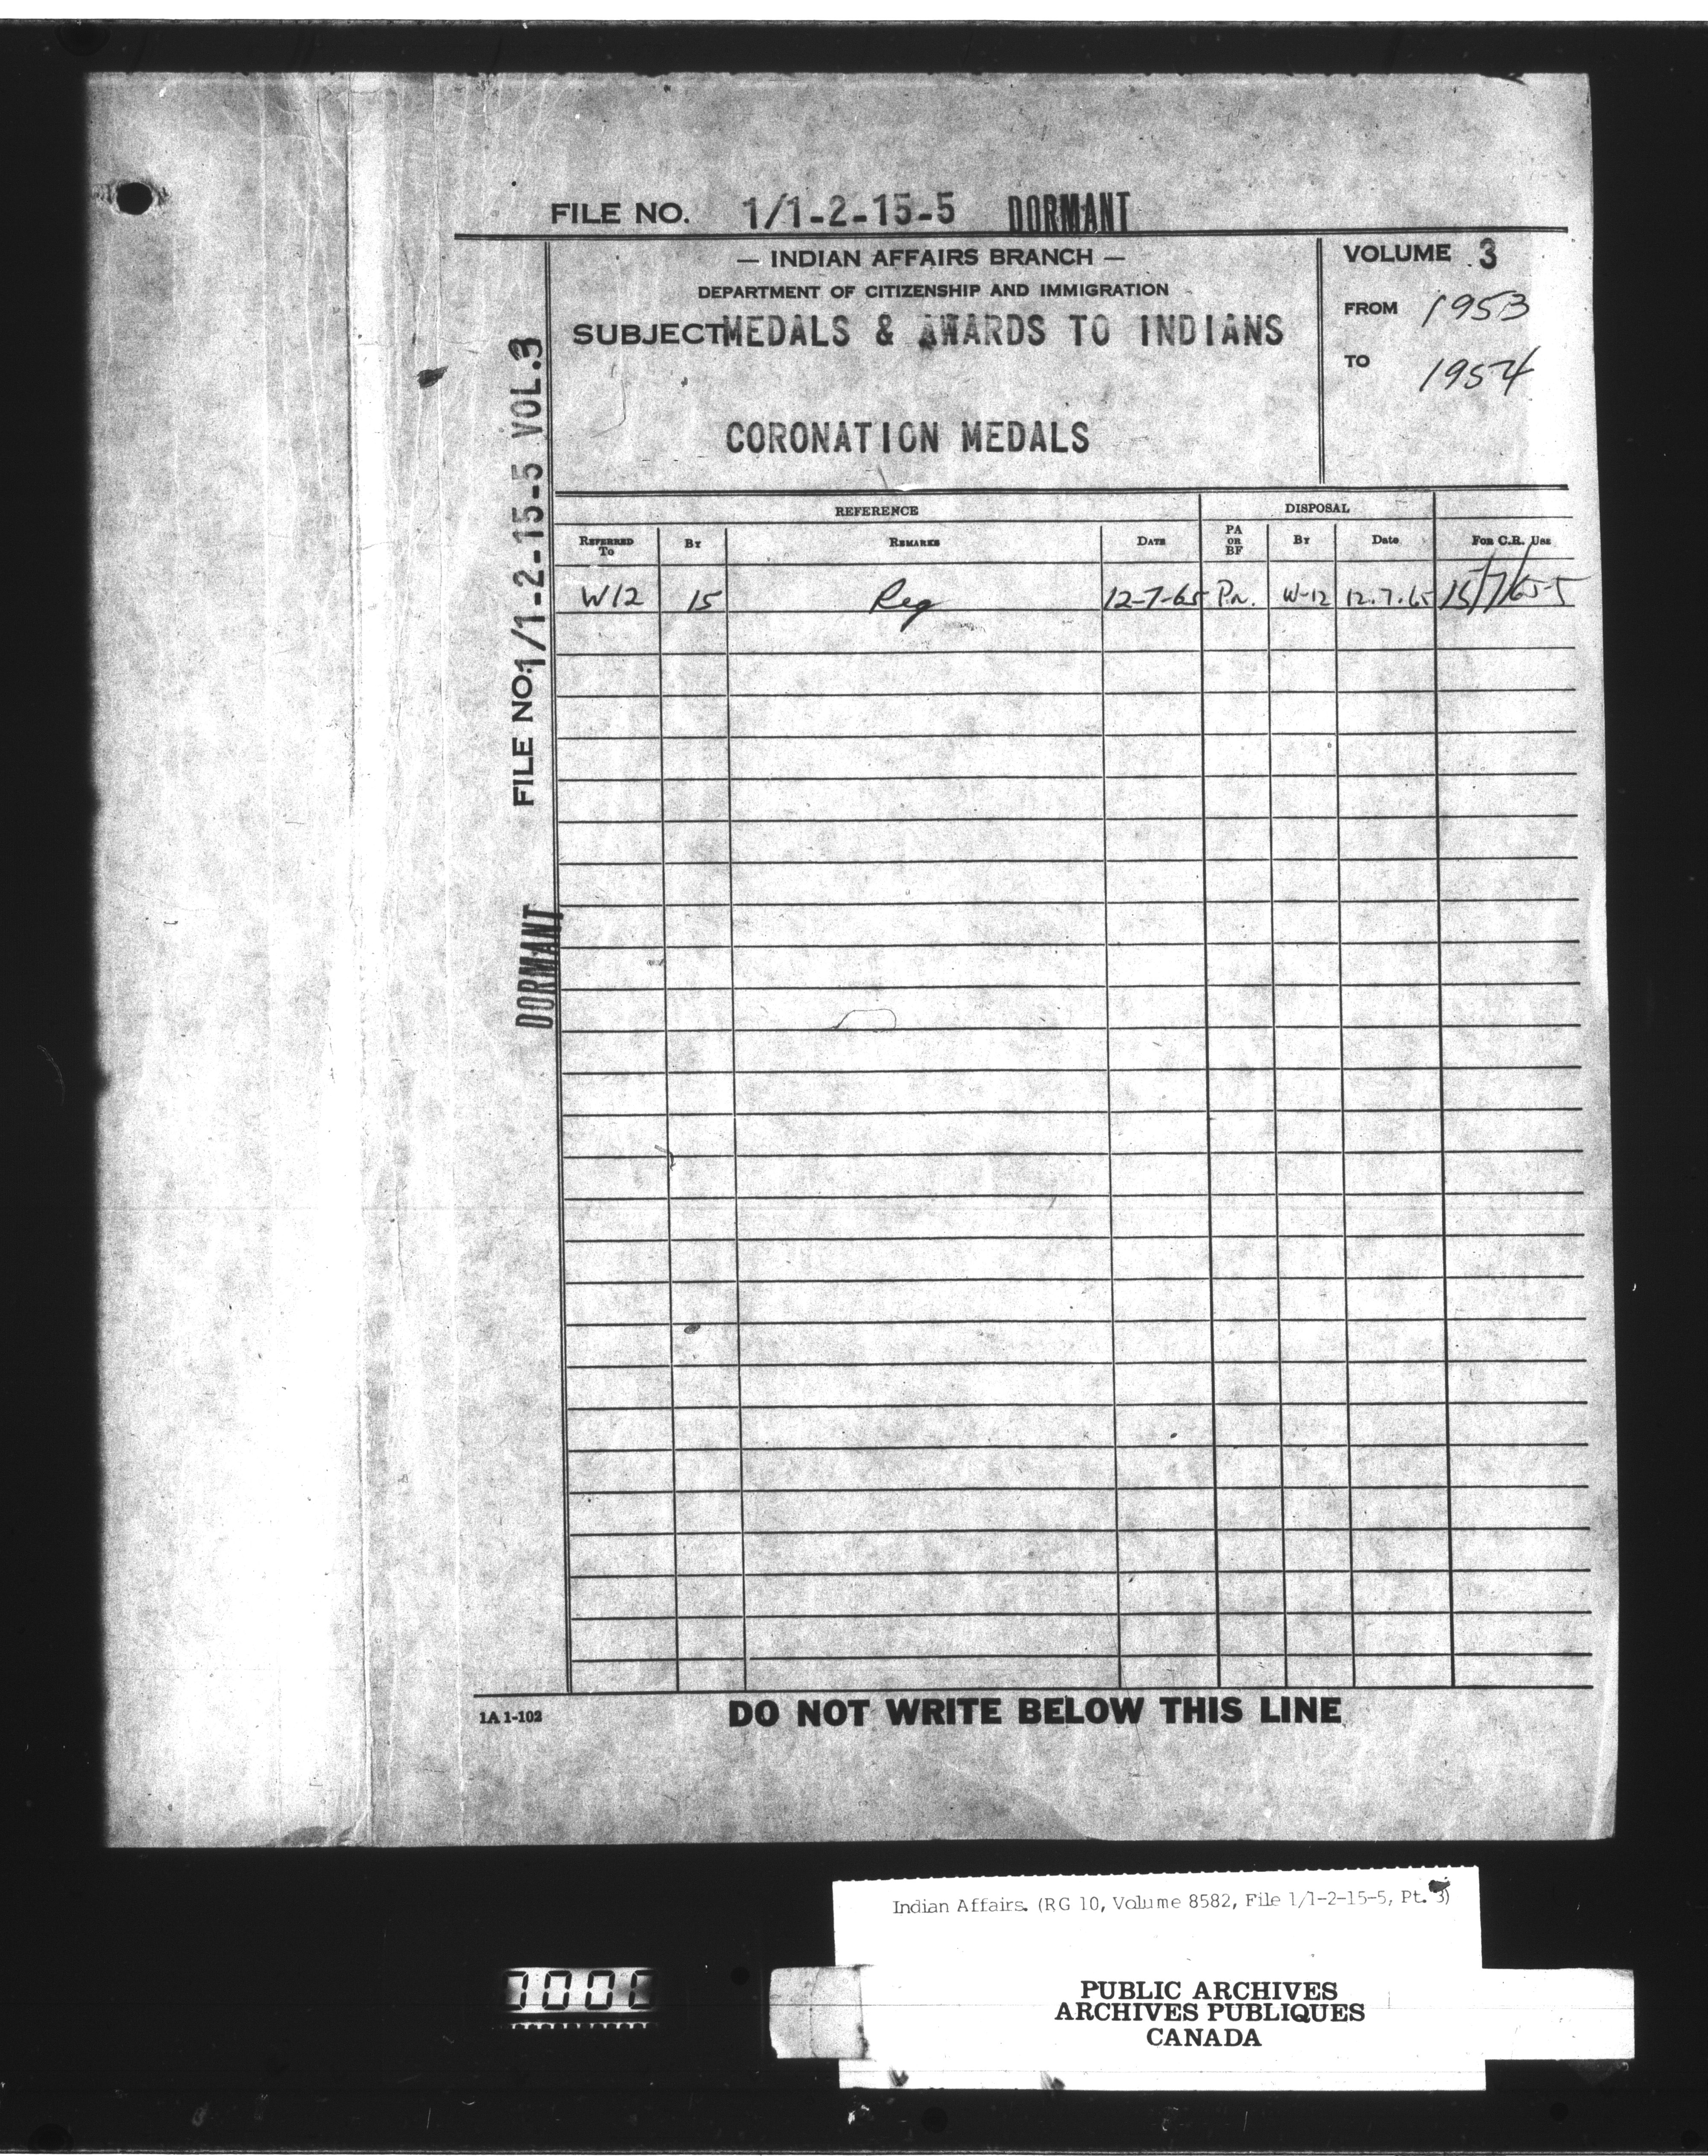 FILE NO. 1/1-2-15-5 DORMANT
— INDIAN AFFAIRS BRANCH —
DEPARTMENT OF CITIZENSHIP AND IMMIGRATION
SUBJECT MEDALS & AWARDS TO INDIANS
CORONATION MEDALS
VOLUME 3
FROM 1953
TO 1954
FILE NO. 1/1-2-15-5 VOL.3
DORMANT
REFERENCE DISPOSAL
REFERRED TO BY REMARKS DATE PA OR BF BY Date FOR C.R. USE
W12 15 Req 12-7-65 P.A. W-12 12.7.65
1A 1-102
DO NOT WRITE BELOW THIS LINE
Indian Affairs. (RG 10, Volume 8582, File 1/1-2-15-5, Pt. 3)
PUBLIC ARCHIVES
ARCHIVES PUBLIQUES
CANADA